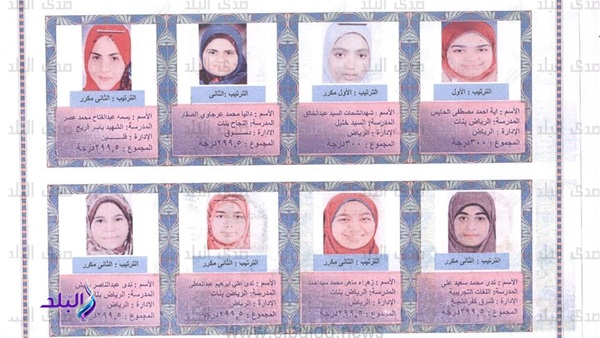 صدى البلد
الترتيب : الأول مكرر
الأسم : آية احمد مصطفى الحابس
المدرسة: الرياض بنات
الإدارة : الرياض
المجموع : ٣٠٠درجة
الترتيب : الأول
الأسم : شهدالشحات السيد عبدالخالق
المدرسة: السيد خليل
الإدارة : الرياض
المجموع : ٣٠٠درجة
الترتيب :الثانى
الأسم : داليا محمد عرجاوى الصفار
المدرسة: النجاح بنات
الإدارة : دسوق
المجموع : ٢٩٩,٥درجة
الترتيب : الثانى مكرر
الأسم : بسمه عبدالفتاح محمد عصر
المدرسة: الشهيد ياسر
الإدارة : قلين
المجموع : ٢٩٩,٥درجة
الترتيب : الثانى مكرر
الأسم : ندى محمد سعيد على
المدرسة: اللغات التجريبية
الإدارة : شرق كفرالشيخ
المجموع : ٢٩٩,٥درجة
الترتيب : الثانى مكرر
الأسم : زهراء ماهر محمد سيداحمد
المدرسة: الرياض بنات
الإدارة : الرياض
المجموع : ٢٩٩,٥درجة
الترتيب : الثانى مكرر
الأسم : ندى على ابراهيم عبدالعاطى
المدرسة: الرياض بنات
الإدارة : الرياض
المجموع : ٢٩٩,٥درجة
الترتيب : الثانى مكرر
الأسم : ندى عبدالناصر
المدرسة: الرياض بنات
الإدارة : الرياض
المجموع : ٢٩٩,٥درجة
البلد
www.elbalad.news